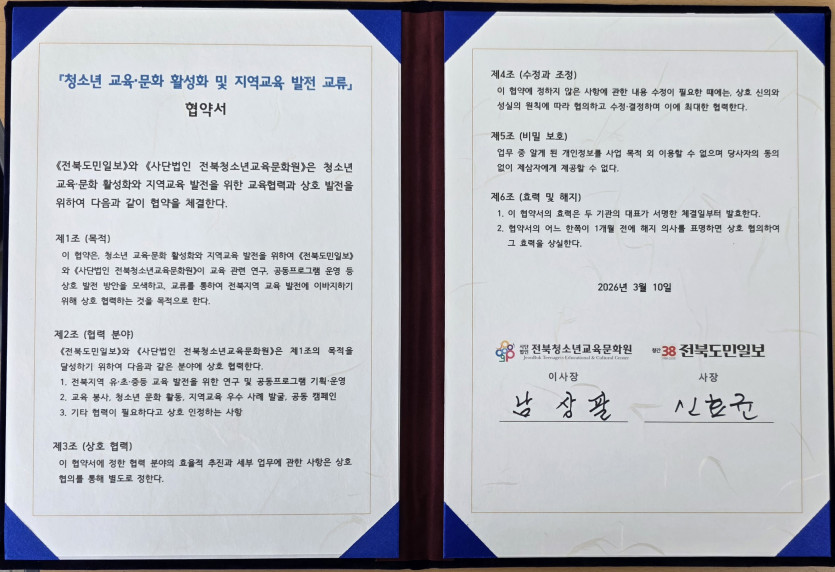 「청소년 교육·문화 활성화 및 지역교육 발전 교류」
협약서
《전북도민일보》와 《사단법인 전북청소년교육문화원》은 청소년
교육·문화 활성화와 지역교육 발전을 위한 교육협력과 상호 발전을
위하여 다음과 같이 협약을 체결한다.
제1조 (목적)
이 협약은, 청소년 교육·문화 활성화와 지역교육 발전을 위하여 《전북도민일보》
와 《사단법인 전북청소년교육문화원》이 교육 관련 연구, 공동프로그램 운영 등
상호 발전 방안을 모색하고, 교류를 통하여 전북지역 교육 발전에 이바지하기
위해 상호 협력하는 것을 목적으로 한다.
제2조 (협력 분야)
《전북도민일보》와 《사단법인 전북청소년교육문화원》은 제1조의 목적을
달성하기 위하여 다음과 같은 분야에 상호 협력한다.
1. 전북지역 유·초·중등 교육 발전을 위한 연구 및 공동프로그램 기획·운영
2. 교육 봉사, 청소년 문화 활동, 지역교육 우수 사례 발굴, 공동 캠페인
3. 기타 협력이 필요하다고 상호 인정하는 사항
제3조 (상호 협력)
이 협약서에 정한 협력 분야의 효율적 추진과 세부 업무에 관한 사항은 상호
협의를 통해 별도로 정한다.
제4조 (수정과 조정)
이 협약에 정하지 않은 사항에 관한 내용 수정이 필요한 때에는, 상호 신의와
성실의 원칙에 따라 협의하고 수정·결정하며 이에 최대한 협력한다.
제5조 (비밀 보호)
업무 중 알게 된 개인정보를 사업 목적 외 이용할 수 없으며 당사자의 동의
없이 제삼자에게 제공할 수 없다.
제6조 (효력 및 해지)
1. 이 협약서의 효력은 두 기관의 대표가 서명한 체결일부터 발효한다.
2. 협약서의 어느 한쪽이 1개월 전에 해지 의사를 표명하면 상호 협의하여
그 효력을 상실한다.
2026년 3월 10일
사단법인 전북청소년교육문화원
Jeonbuk Teenagers Educational & Cultural Center
이사장
남 상 팔
창간 38 전북도민일보
사장
신효균